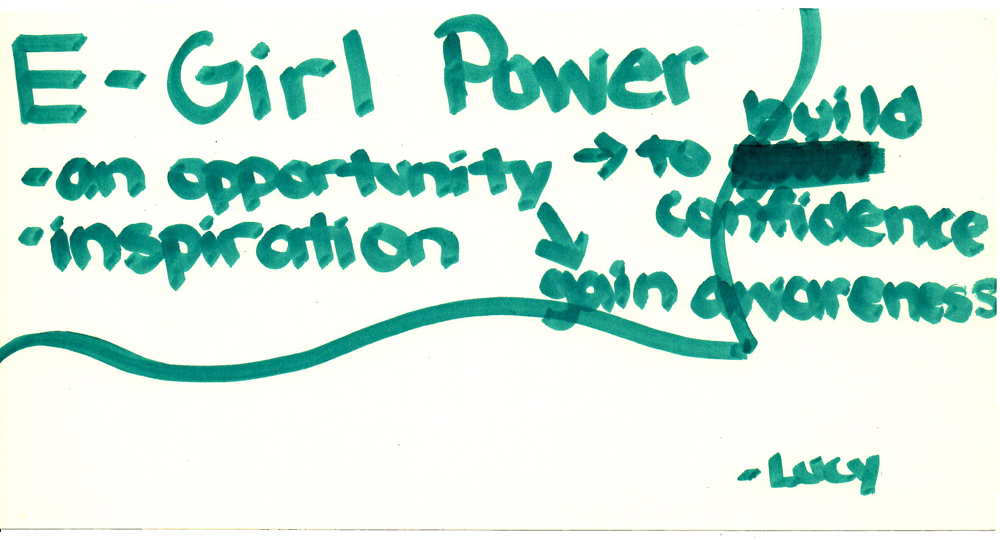 E-Girl Power
- an opportunity → to build
confidence
- inspiration
gain awareness
- Lucy